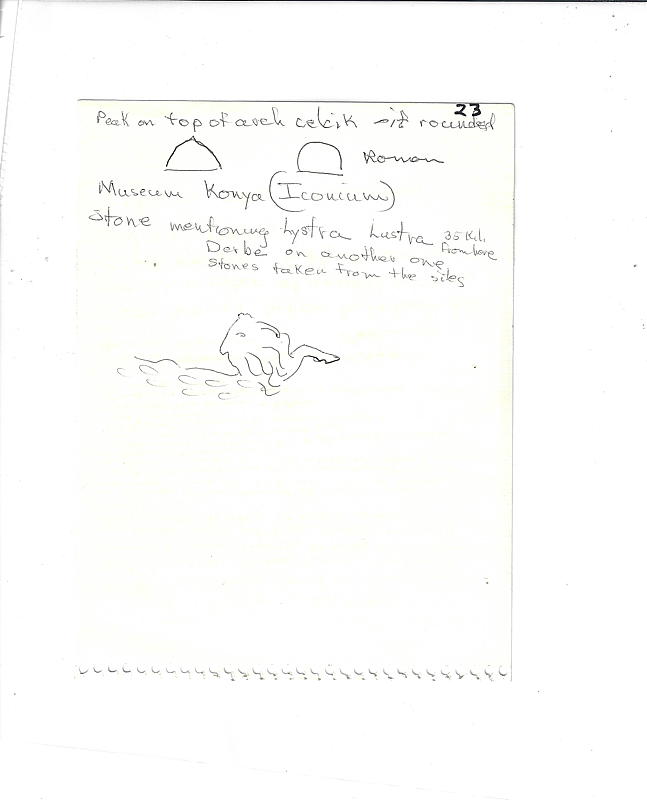 23
Peak on top of arch celcik - if rounded
Roman
Museum Konya (Iconium)
Stone mentioning Lystra Lustra 35 Kil. from here
Derbe on another one
Stones taken from the sites